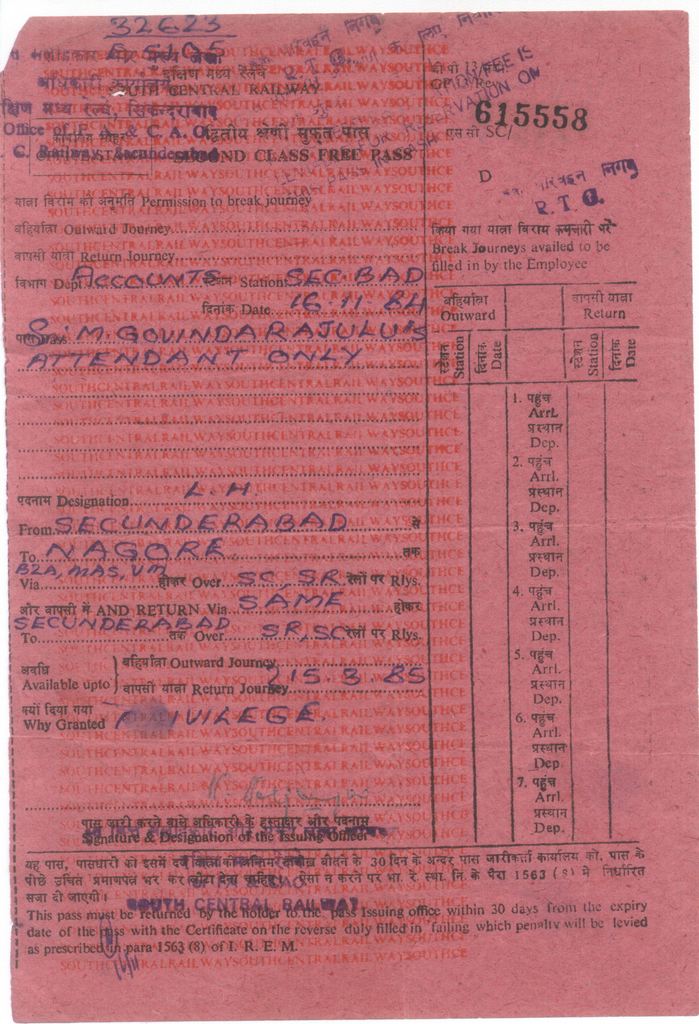 32623
A 5105
दक्षिण मध्य रेलवे
SOUTH CENTRAL RAILWAY
कार्यालय
Office of F. A. & C. A. O.
द्वितीय श्रेणी मुफ्त पास
C. Railway, Secunderabad
SECOND CLASS FREE PASS
FEE IS
RESERVATION ON
615558
एस सी SC/
D
परिवहन निगम
R. T. C.
यात्रा विराम की अनुमति Permission to break journey
बहिर्यात्रा Outward Journey
वापसी यात्रा Return Journey
विभाग Dept. ACCOUNTS स्टेशन Station SEC'BAD
दिनांक Date 16.11.84
पास Pass S. M. GOVINDARAJULU'S
ATTENDANT ONLY
पदनाम Designation L. H.
From SECUNDERABAD से
To NAGORE तक
BZA, MAS, VM
Via होकर Over SC, SR रेलों पर Rlys.
और वापसी में AND RETURN Via SAME होकर
SECUNDERABAD
To तक Over SR, SC रेलों पर Rlys.
अवधि
Available upto
बहिर्यात्रा Outward Journey
वापसी यात्रा Return Journey
15.3.85
क्यों दिया गया
Why Granted PRIVILEGE
पास जारी करने वाले अधिकारी के हस्ताक्षर और पदनाम
Signature & Designation of the Issuing Officer
किया गया यात्रा विराम कर्मचारी भरें
Break Journeys availed to be
filled in by the Employee
बहिर्यात्रा
Outward
वापसी यात्रा
Return
स्टेशन Station
दिनांक Date
स्टेशन Station
दिनांक Date
1. पहुंच
Arrl.
प्रस्थान
Dep.
2. पहुंच
Arrl.
प्रस्थान
Dep.
3. पहुंच
Arrl.
प्रस्थान
Dep.
4. पहुंच
Arrl.
प्रस्थान
Dep.
5. पहुंच
Arrl.
प्रस्थान
Dep.
6. पहुंच
Arrl.
प्रस्थान
Dep.
7. पहुंच
Arrl.
प्रस्थान
Dep.
यह पास, पासधारी को इसमें दर्ज तारीख बीतने के 30 दिन के अन्दर पास जारीकर्ता कार्यालय को, पास के
पीछे उचित प्रमाणपत्र भर कर लौटा देना चाहिए। ऐसा न करने पर भा. रे. स्था. नि. के पैरा 1563 (8) में निर्धारित
सजा दी जाएगी।
SOUTH CENTRAL RAILWAY
This pass must be returned by the holder to the pass Issuing office within 30 days from the expiry
date of the pass with the Certificate on the reverse duly filled in failing which penalty will be levied
as prescribed in para 1563 (8) of I. R. E. M.